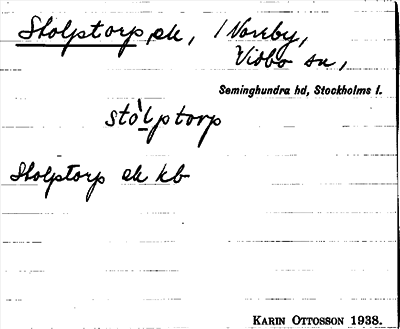 Stolptorp, ek, i Noreby,
Vidbo sn,
Seminghundra hd, Stockholms l.
stòlptorp
Stolptorp ek kb
KARIN OTTOSSON 1938.